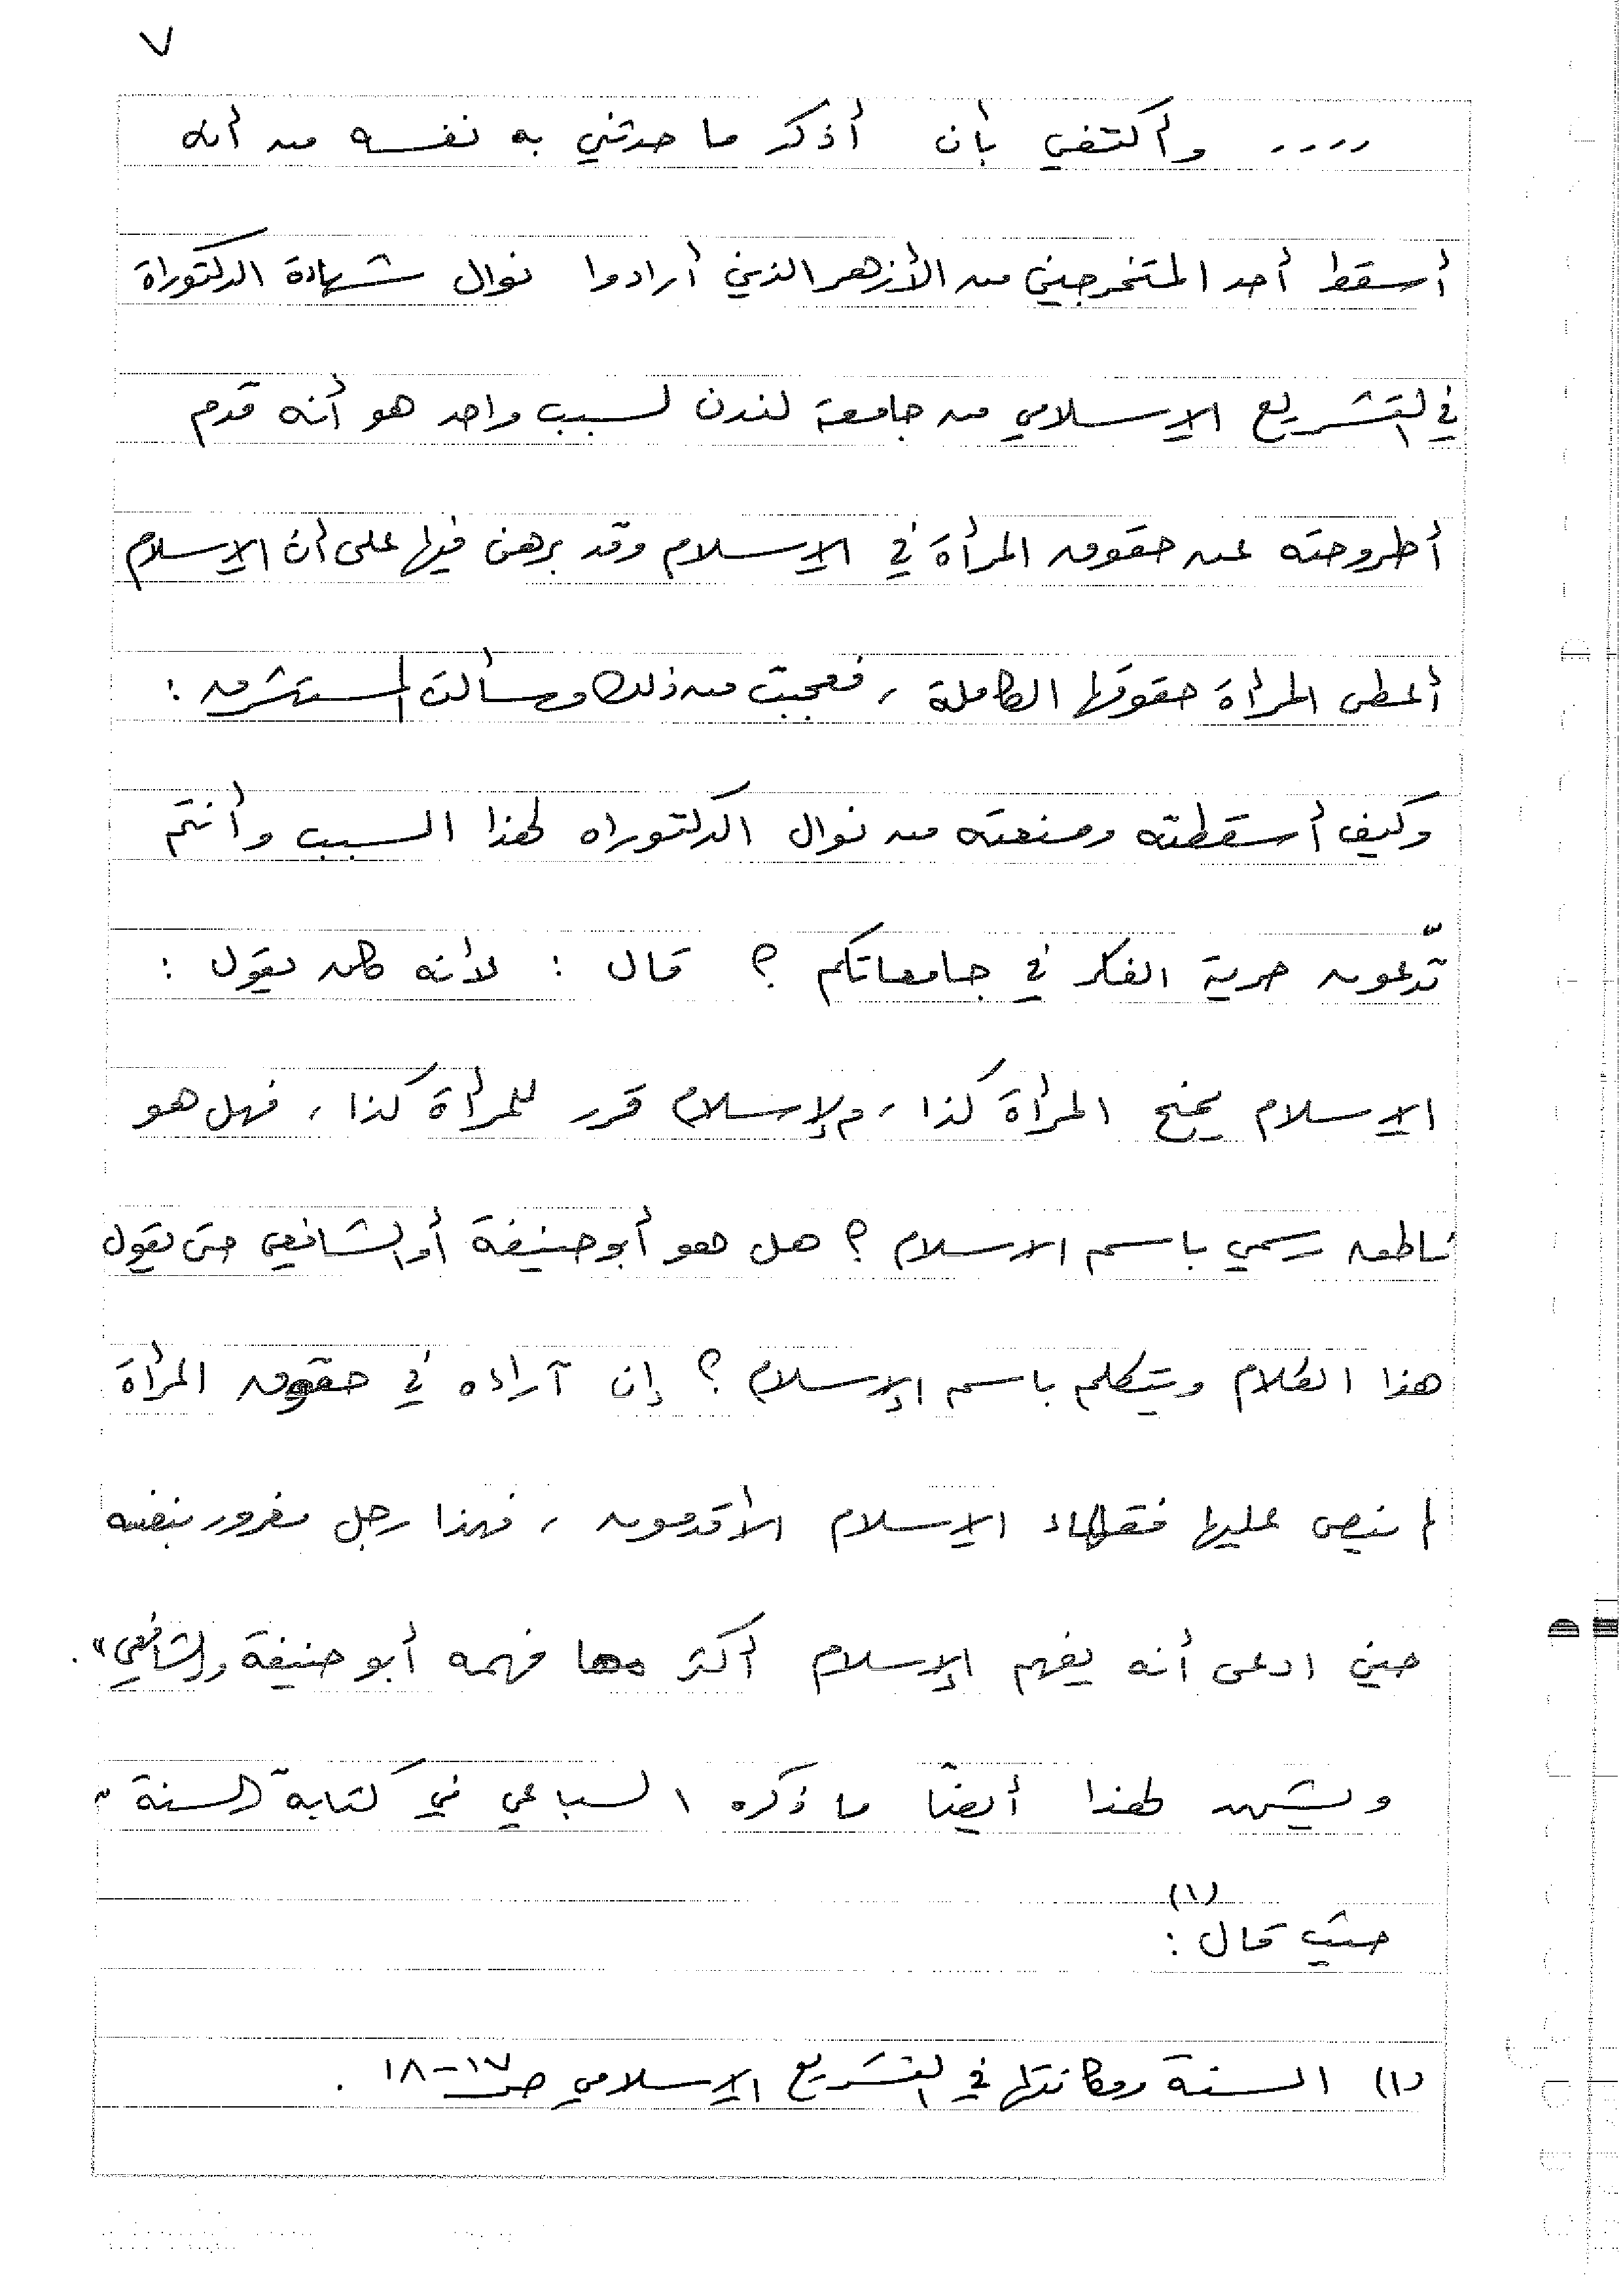 ٧
.... وأكتفي بأن أذكر ما حدثني به نفسه من أنه
أسقط أحد المتخرجين من الأزهر الذين أرادوا نوال شهادة الدكتوراة
في التشريع الإسلامي من جامعة لندن لسبب واحد هو أنه قدم
أطروحته عن حقوق المرأة في الإسلام وقد برهن فيها على أن الإسلام
أعطى المرأة حقوقها الكاملة ، فعجبت من ذلك وسألت المستشرق :
وكيف أسقطته ومنعته من نوال الدكتوراه لهذا السبب وأنتم
تدّعون حرية الفكر في جامعاتكم ؟ قال : لأنه كان يقول :
الإسلام يمنح المرأة كذا ، والإسلام قرر للمرأة كذا ، فهل هو
ناطق رسمي باسم الاسلام ؟ هل هو أبو حنيفة أو الشافعي حتى يقول
هذا الكلام ويتكلم باسم الإسلام ؟ إن آراءه في حقوق المرأة
لم ينص عليها فقهاء الإسلام الأقدمون ، فهذا رجل مغرور بنفسه
حين ادعى أنه يفهم الإسلام أكثر مما فهمه أبو حنيفة والشافعي» .
ويشهد لهذا أيضًا ما ذكره السباعي في كتابه "السنة"
حيث قال (١) :
(١) السنة ومكانتها في التشريع الإسلامي ص ١٧-١٨ .